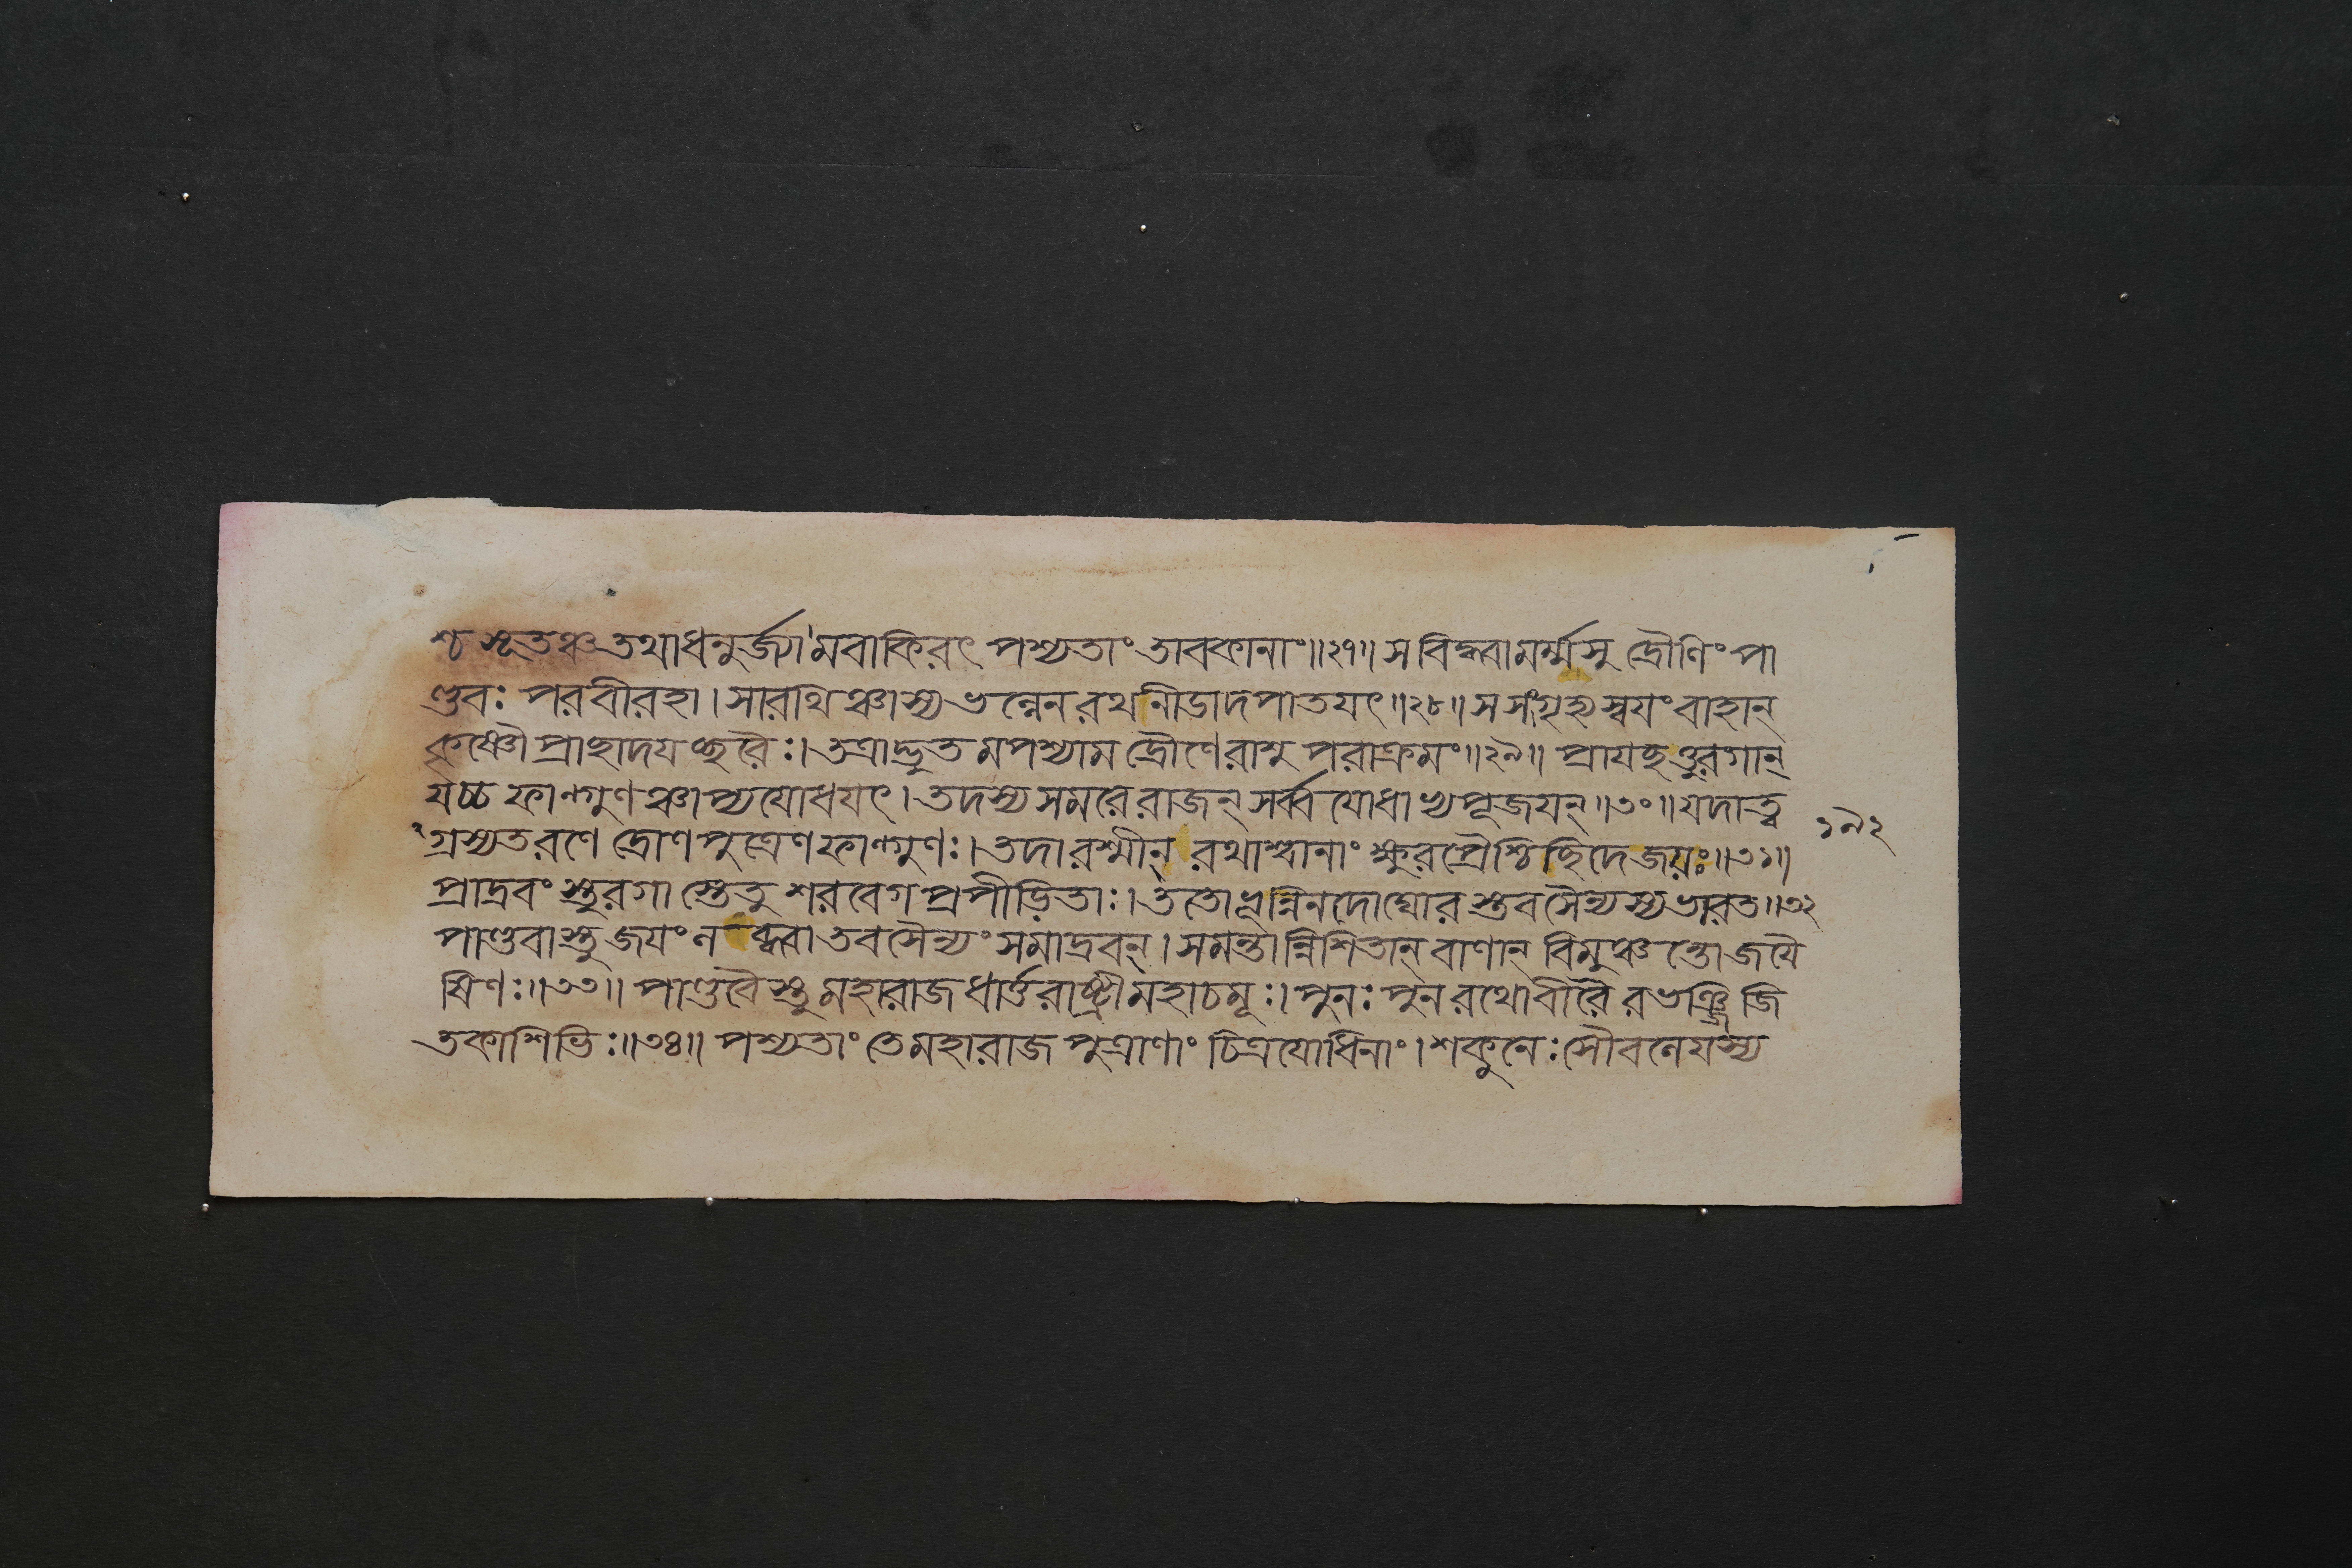 শ্চ সূতঞ্চ তথা ধনুর্জ্যামবাকিরৎ পশ্যতাং তাবকানাং॥২৭॥ স বিদ্ধ্বা মর্ম্মসু দ্রৌণিং পা
ণ্ডবঃ পরবীরহা। সারথিঞ্চাস্য ভল্লেন রথনীডাদপাতযৎ॥২৮॥ স সংগৃহ্য স্বযং বাহান্
কৃষ্ণৌ প্রাচ্ছাদযচ্ছরৈঃ। তত্রাদ্ভুতমপশ্যাম দ্রৌণেরাশু পরাক্রমং॥২৯॥ প্রাযচ্ছত্তুরগান্
যচ্চ ফাল্গুণঞ্চাপ্যযোধযৎ। তদস্য সমরে রাজন্ সর্ব্বে যোধাভ্যপূজযন্॥৩০॥ যদা ত্ব
গ্রস্যত রণে দ্রোণপুত্রেণ ফাল্গুণঃ। তদা রশ্মীন্ রথাশ্বানাং ক্ষুরপ্রৈশ্চিচ্ছিদে জযঃ॥৩১॥
প্রাদ্রবংস্তুরগাস্তে তু শরবেগপ্রপীড়িতাঃ। ততোভূন্নিনদো ঘোরস্তব সৈন্যস্য ভারত॥৩২
পাণ্ডবাস্তু জযং ল ব্ধ্বা তব সৈন্যং সমাদ্রবন্। সমন্তান্নিশিতান্ বাণান্ বিমুঞ্চন্তো জযৈ
ষিণঃ॥৩৩॥ পাণ্ডবৈস্তু মহারাজ ধার্ত্তরাষ্ট্রী মহাচমূঃ। পুনঃ পুনরথো বীরৈরভঞ্জি জি
তকাশিভিঃ॥৩৪॥ পশ্যতাং তে মহারাজ পুত্রাণাং চিত্রযোধিনাং। শকুনেঃ সৌবলেযস্য
১৯২